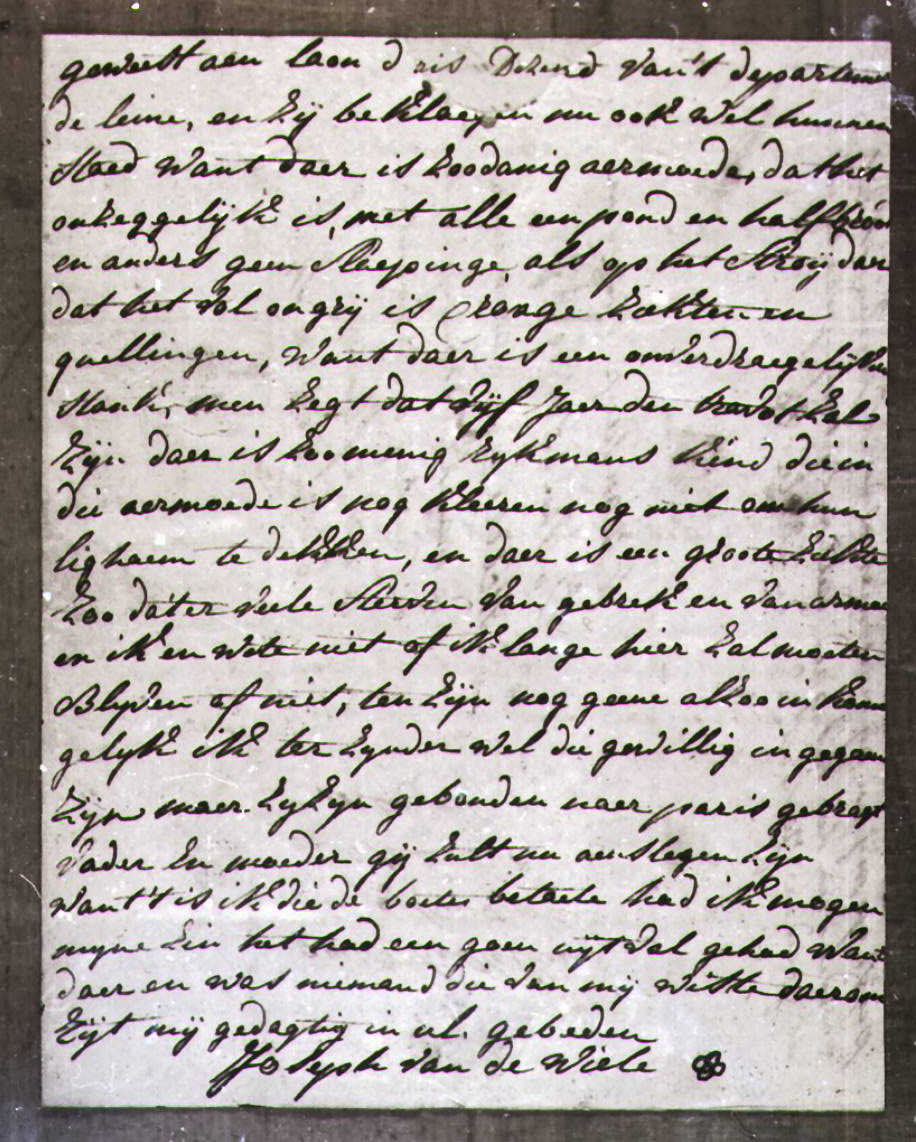 geweest aen laon d dezend van't departeme
de leine, en zij beklaegen nu ook wel hunnen
staed want daer is zoodanig aermoede, dat het
onzeggelijk is, met alle een pond en half
en anders geen slaepinge, als op het stroij daer
dat het vol ongzij is zienge ziekten en
quellingen, want daer is een onverdraegelijken
stank, men zegt dat vijf Jaer den zal
zijn daer is zoo menig rykmans kind die in
die aermoede is nog kleeren nog niet om hun
lighaem te dekken, en daer is een groote ziekte
zoo dat'er veele sterven van gebrek en van armoe
en ik en wete niet of ik lange hier zal moeten
Blyven of niet, ten zijn nog geene alzoo in
gelyk ik ter zynder wel die gewillig in gegaen
zijn maer zyzyn gebonden naer paris gebragt
vader en moeder gij zult nu aenslegen zijn
want 't is ik die de boeten betaele had ik mogen
myne zin het had een goen uijtval gehad want
daer en was niemand die van mij wiste daerom
zijt mij gedagtig in ul. gebeden
Joseph van de wiele